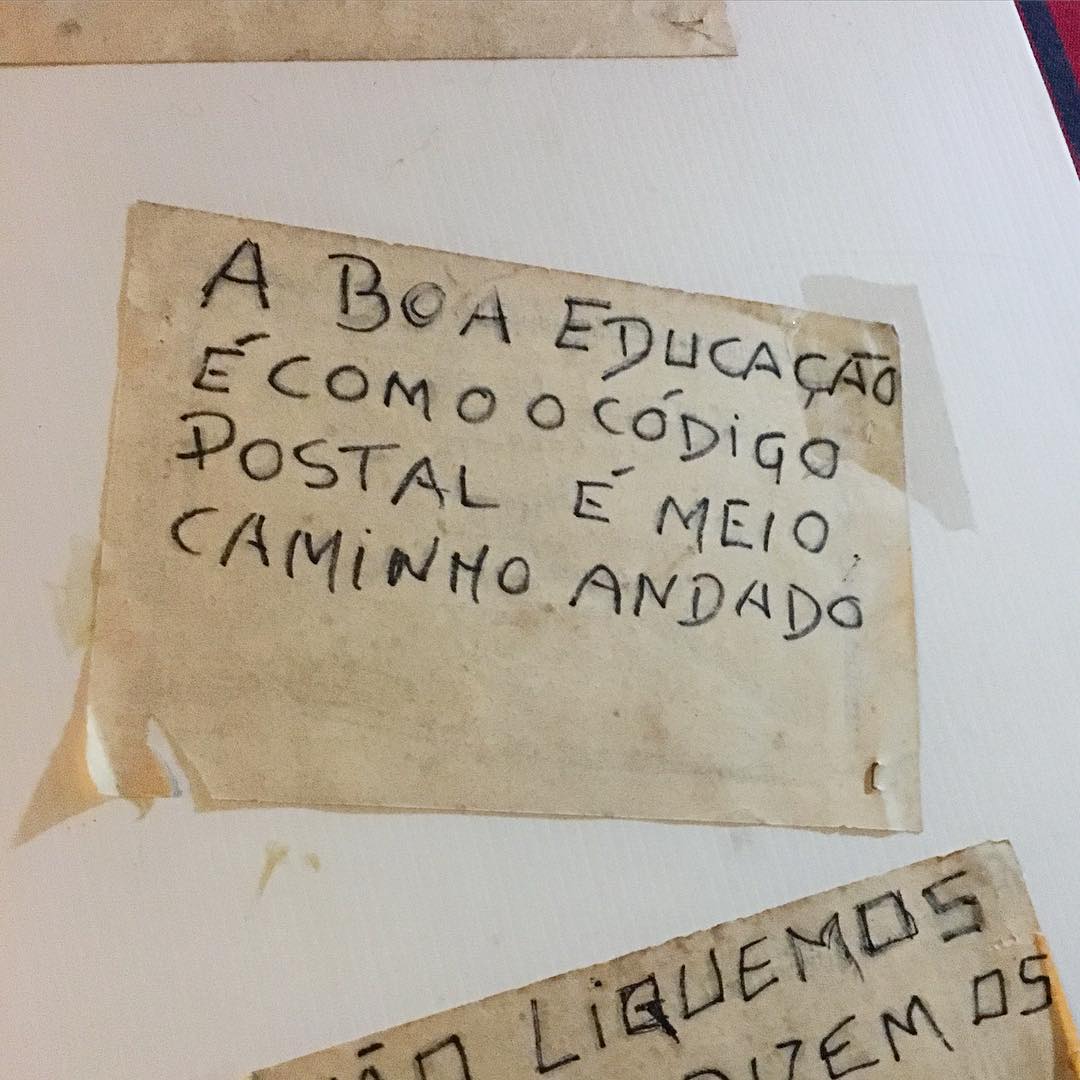 A BOA EDUCAÇÃO
É COMO O CÓDIGO
POSTAL É MEIO
CAMINHO ANDADO
LIQUEMOS
DIZEM OS